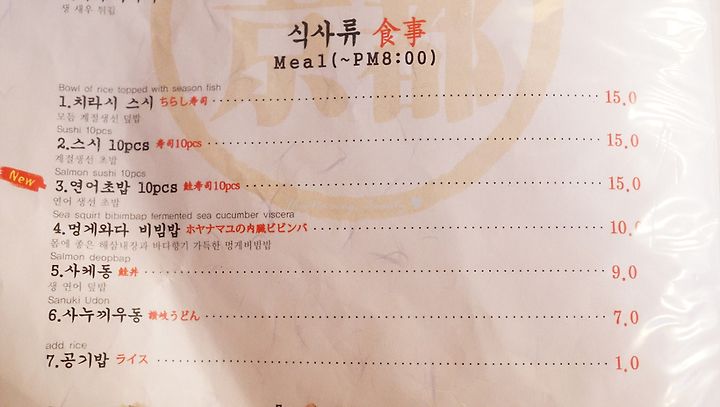 생 새우 튀김
식사류 食事
Meal(~PM8:00)
Bowl of rice topped with season fish
1.치라시 스시 ちらし寿司 15.0
모듬 계절생선 덮밥
Sushi 10pcs
2.스시 10pcs 寿司10pcs 15.0
계절생선 초밥
Salmon sushi 10pcs
New
3.연어초밥 10pcs 鮭寿司10pcs 15.0
연어 생선 초밥
Sea squirt bibimbap fermented sea cucumber viscera
4.멍게와다 비빔밥 ホヤナマコの内臓ビビンバ 10.0
몸에 좋은 해삼내장과 바다향기 가득한 멍게비빔밥
Salmon deopbap
5.사케동 鮭丼 9.0
생 연어 덮밥
Sanuki Udon
6.사누끼우동 讃岐うどん 7.0
add rice
7.공기밥 ライス 1.0